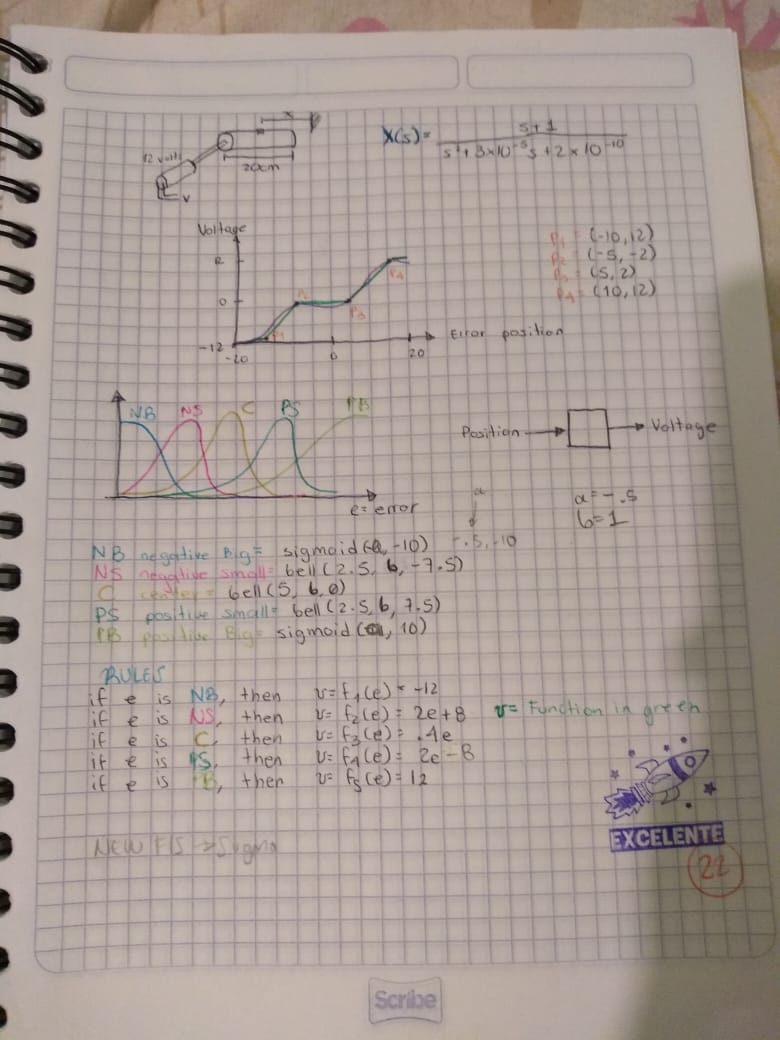 x
12 volts
20cm
V
X(s)= s+1
s²+3x10⁻⁵s+2x10⁻¹⁰
Voltage
12
0
-12
-20
0
20
Error position
P1
P2
P3
P4
P1 = (-10,12)
P2 = (-5,-2)
P3 = (5,2)
P4 = (10,12)
NB
NS
C
PS
PB
e=error
Position
Voltage
a
a=-.5
b=1
-.5,-10
NB negative Big= sigmoid(a,-10)
NS negative small= bell(2.5, b, -7.5)
C center= bell(5, b, 0)
PS positive small= bell(2.5, b, 7.5)
PB positive Big= sigmoid(a, 10)
RULES
if e is NB, then v=f1(e)=-12
if e is NS, then v=f2(e)=2e+8
if e is C, then v=f3(e)=.4e
if e is PS, then v=f4(e)=2e-8
if e is PB, then v=f5(e)=12
v= Function in green
NEW FIS -> Sugno
EXCELENTE
22
Scribe